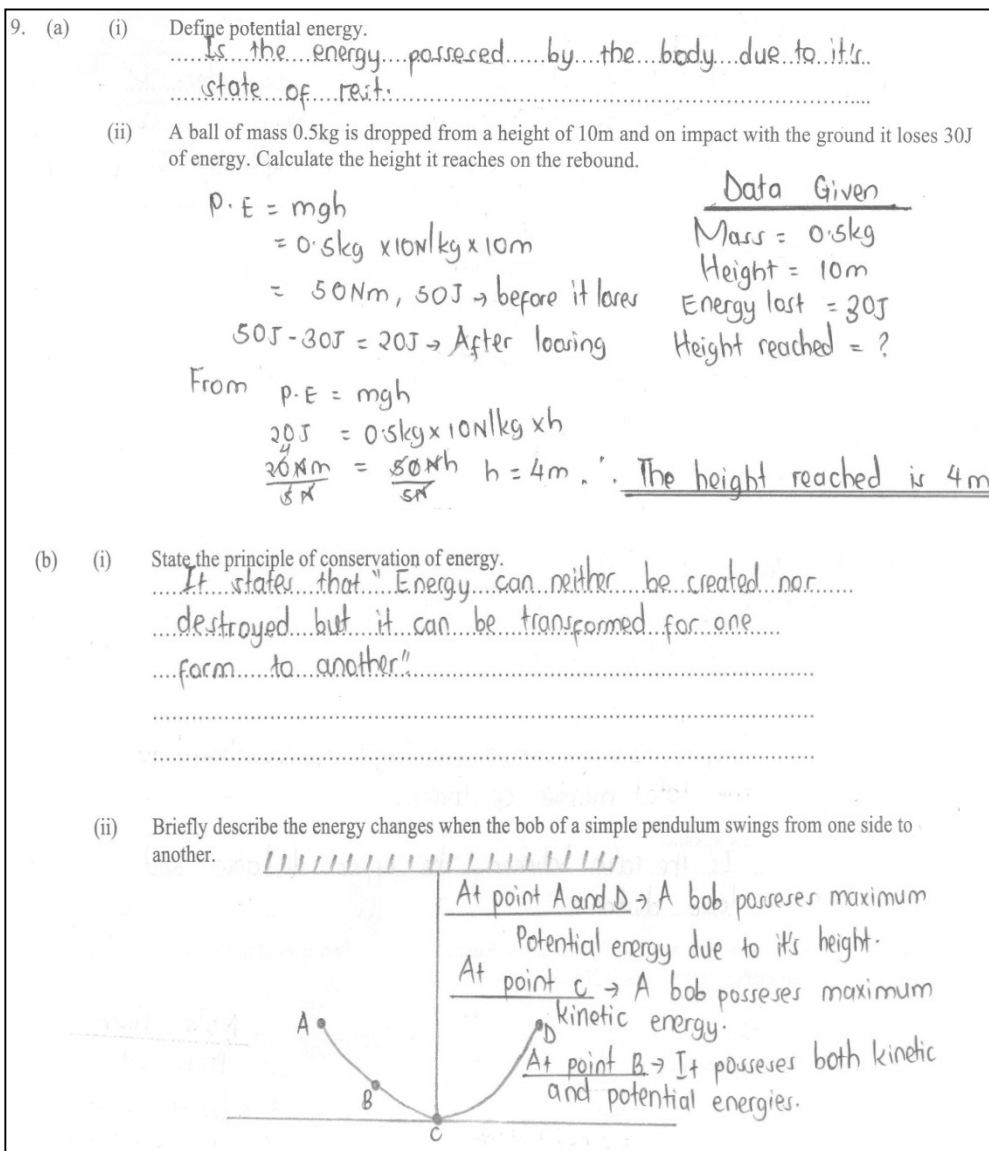 9. (a) (i) Define potential energy.
Is the energy possesed by the body due to it's
state of rest.
(ii) A ball of mass 0.5kg is dropped from a height of 10m and on impact with the ground it loses 30J
of energy. Calculate the height it reaches on the rebound.
Data Given
Mass = 0.5kg
Height = 10m
Energy lost = 30J
Height reached = ?
P.E = mgh
= 0.5kg x10N/kg x 10m
= 50Nm, 50J → before it loses
50J - 30J = 20J → After loosing
From P.E = mgh
20J = 0.5kg x 10N/kg xh
4
20Nm/5N = 50Nh/5N h = 4m ∴ The height reached is 4m
(b) (i) State the principle of conservation of energy.
It states that "Energy can neither be created nor
destroyed but it can be transformed for one
form to another".
(ii) Briefly describe the energy changes when the bob of a simple pendulum swings from one side to
another.
At point A and D → A bob posseses maximum
Potential energy due to it's height.
At point C → A bob posseses maximum
kinetic energy.
At point B → It posseses both kinetic
and potential energies.
A
D
B
C